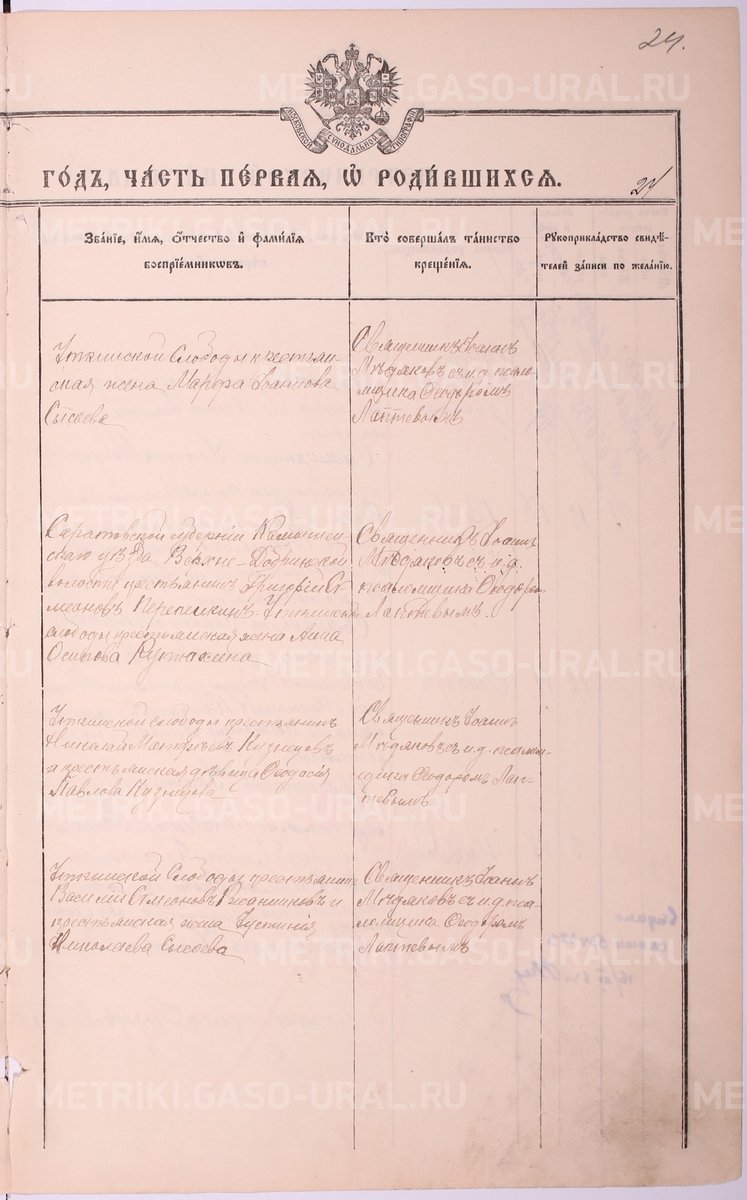 24.
МОСКОВСКОЙ СѴНОДАЛЬНОЙ ТИПОГРАФІИ
ГО́ДЪ, ЧА́СТЬ ПЕ́РВАЯ, Ѽ РОДИ́ВШИХСЯ.
24
Зва́нїе, и҆́мѧ, ѻ҆́тчество и҆ фами́лїѧ
воспрїе́мникѡвъ.
Кто̀ соверша́лъ та́инство
креще́нїѧ.
Рꙋкоприкла́дство свидѣ́-
телей за́писи по жела́нїю.
Уткинской Слободы крестьян-
ская жена Марфа
Сысоева
Священникъ Іоаннъ
Мѣдяковъ съ и. д. псало-
мщика Ѳеодоромъ
Лаптевымъ
Саратовской губерніи Камышин-
скаго уѣзда Верхне-Добринской
волости крестьянинъ Григорій Си-
меоновъ Уткинской
слободы крестьянская жена Анна
Осипова
Священникъ Іоаннъ
Мѣдяковъ съ и. д.
псаломщика Ѳеодоро-
Лаптевымъ.
Уткинской слободы крестьянинъ
Николай Матѳѣевъ Кузнецовъ
и крестьянская дѣвица Ѳеодосія
Павлова Кузнецова
Священникъ Іоаннъ
Мѣдяковъ съ и. д. псалом-
щика Ѳеодоромъ Лап-
тевымъ
Уткинской Слободы крестьянинъ
Василій Симеоновъ и
крестьянская жена Іустинія
Николаева
Священникъ Іоаннъ
Мѣдяковъ съ и. д. пса-
ломщика Ѳеодоромъ
Лаптевымъ
METRIKI.GASO-URAL.RU